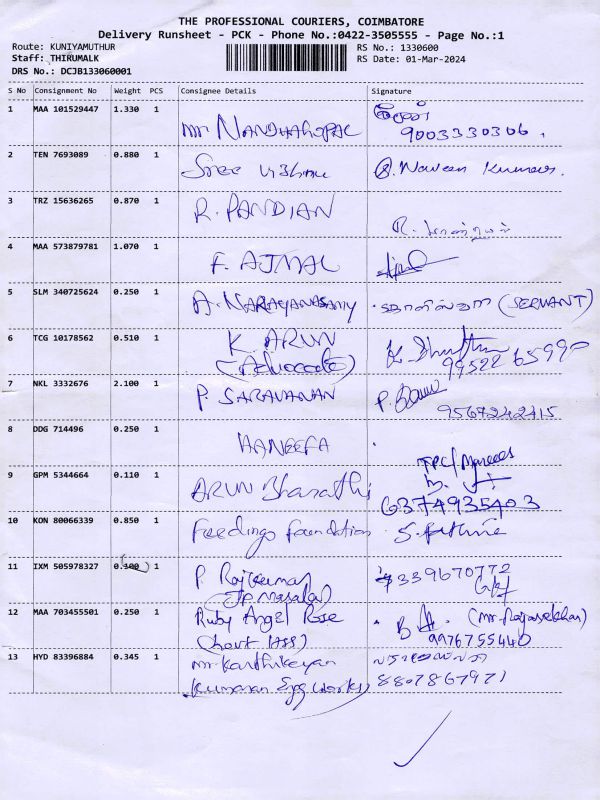 THE PROFESSIONAL COURIERS, COIMBATORE
Delivery Runsheet - PCK - Phone No.:0422-3505555 - Page No.:1
Route: KUNIYAMUTHUR
RS No.: 1330600
Staff: THIRUMALK
RS Date: 01-Mar-2024
DRS No.: DCJB133060001
S No Consignment No Weight PCS Consignee Details Signature
1 MAA 101529447 1.330 1
Mr NANDHAGOPAL
9003330306.
2 TEN 7693089 0.880 1
Sree Vishnu Naveen Kumar.
3 TRZ 15636265 0.870 1
R. PANDIAN
4 MAA 573879781 1.070 1
F. AJMAL
5 SLM 340725624 0.250 1
A. NARAYANASAMY (SERVANT)
6 TCG 10178562 0.510 1
K. ARUN
(Advocate) 99522 65990
7 NKL 3332676 2.100 1
P. SARAVANAN
9567242415
8 DDG 714496 0.250 1
HANEEFA
9 GPM 5344664 0.110 1
ARUN Bharathi
6374935403
10 KON 80066339 0.850 1
Feedings foundation
11 IXM 505978327 0.300 1
P. Rajkumar 7339670772
(Jp Masala)
12 MAA 703455501 0.250 1
Ruby Angel Rose (Mr. Rajasekhar)
9976755440
13 HYD 83396884 0.345 1
Mr Karthikeyan
Kumaran Engg Works) 8807867971